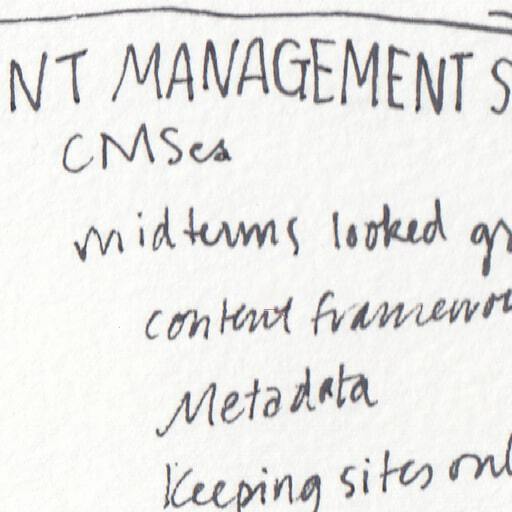 NT MANAGEMENT S
CMSes
midterms looked gr
content framewo
Metadata
Keeping sites onl